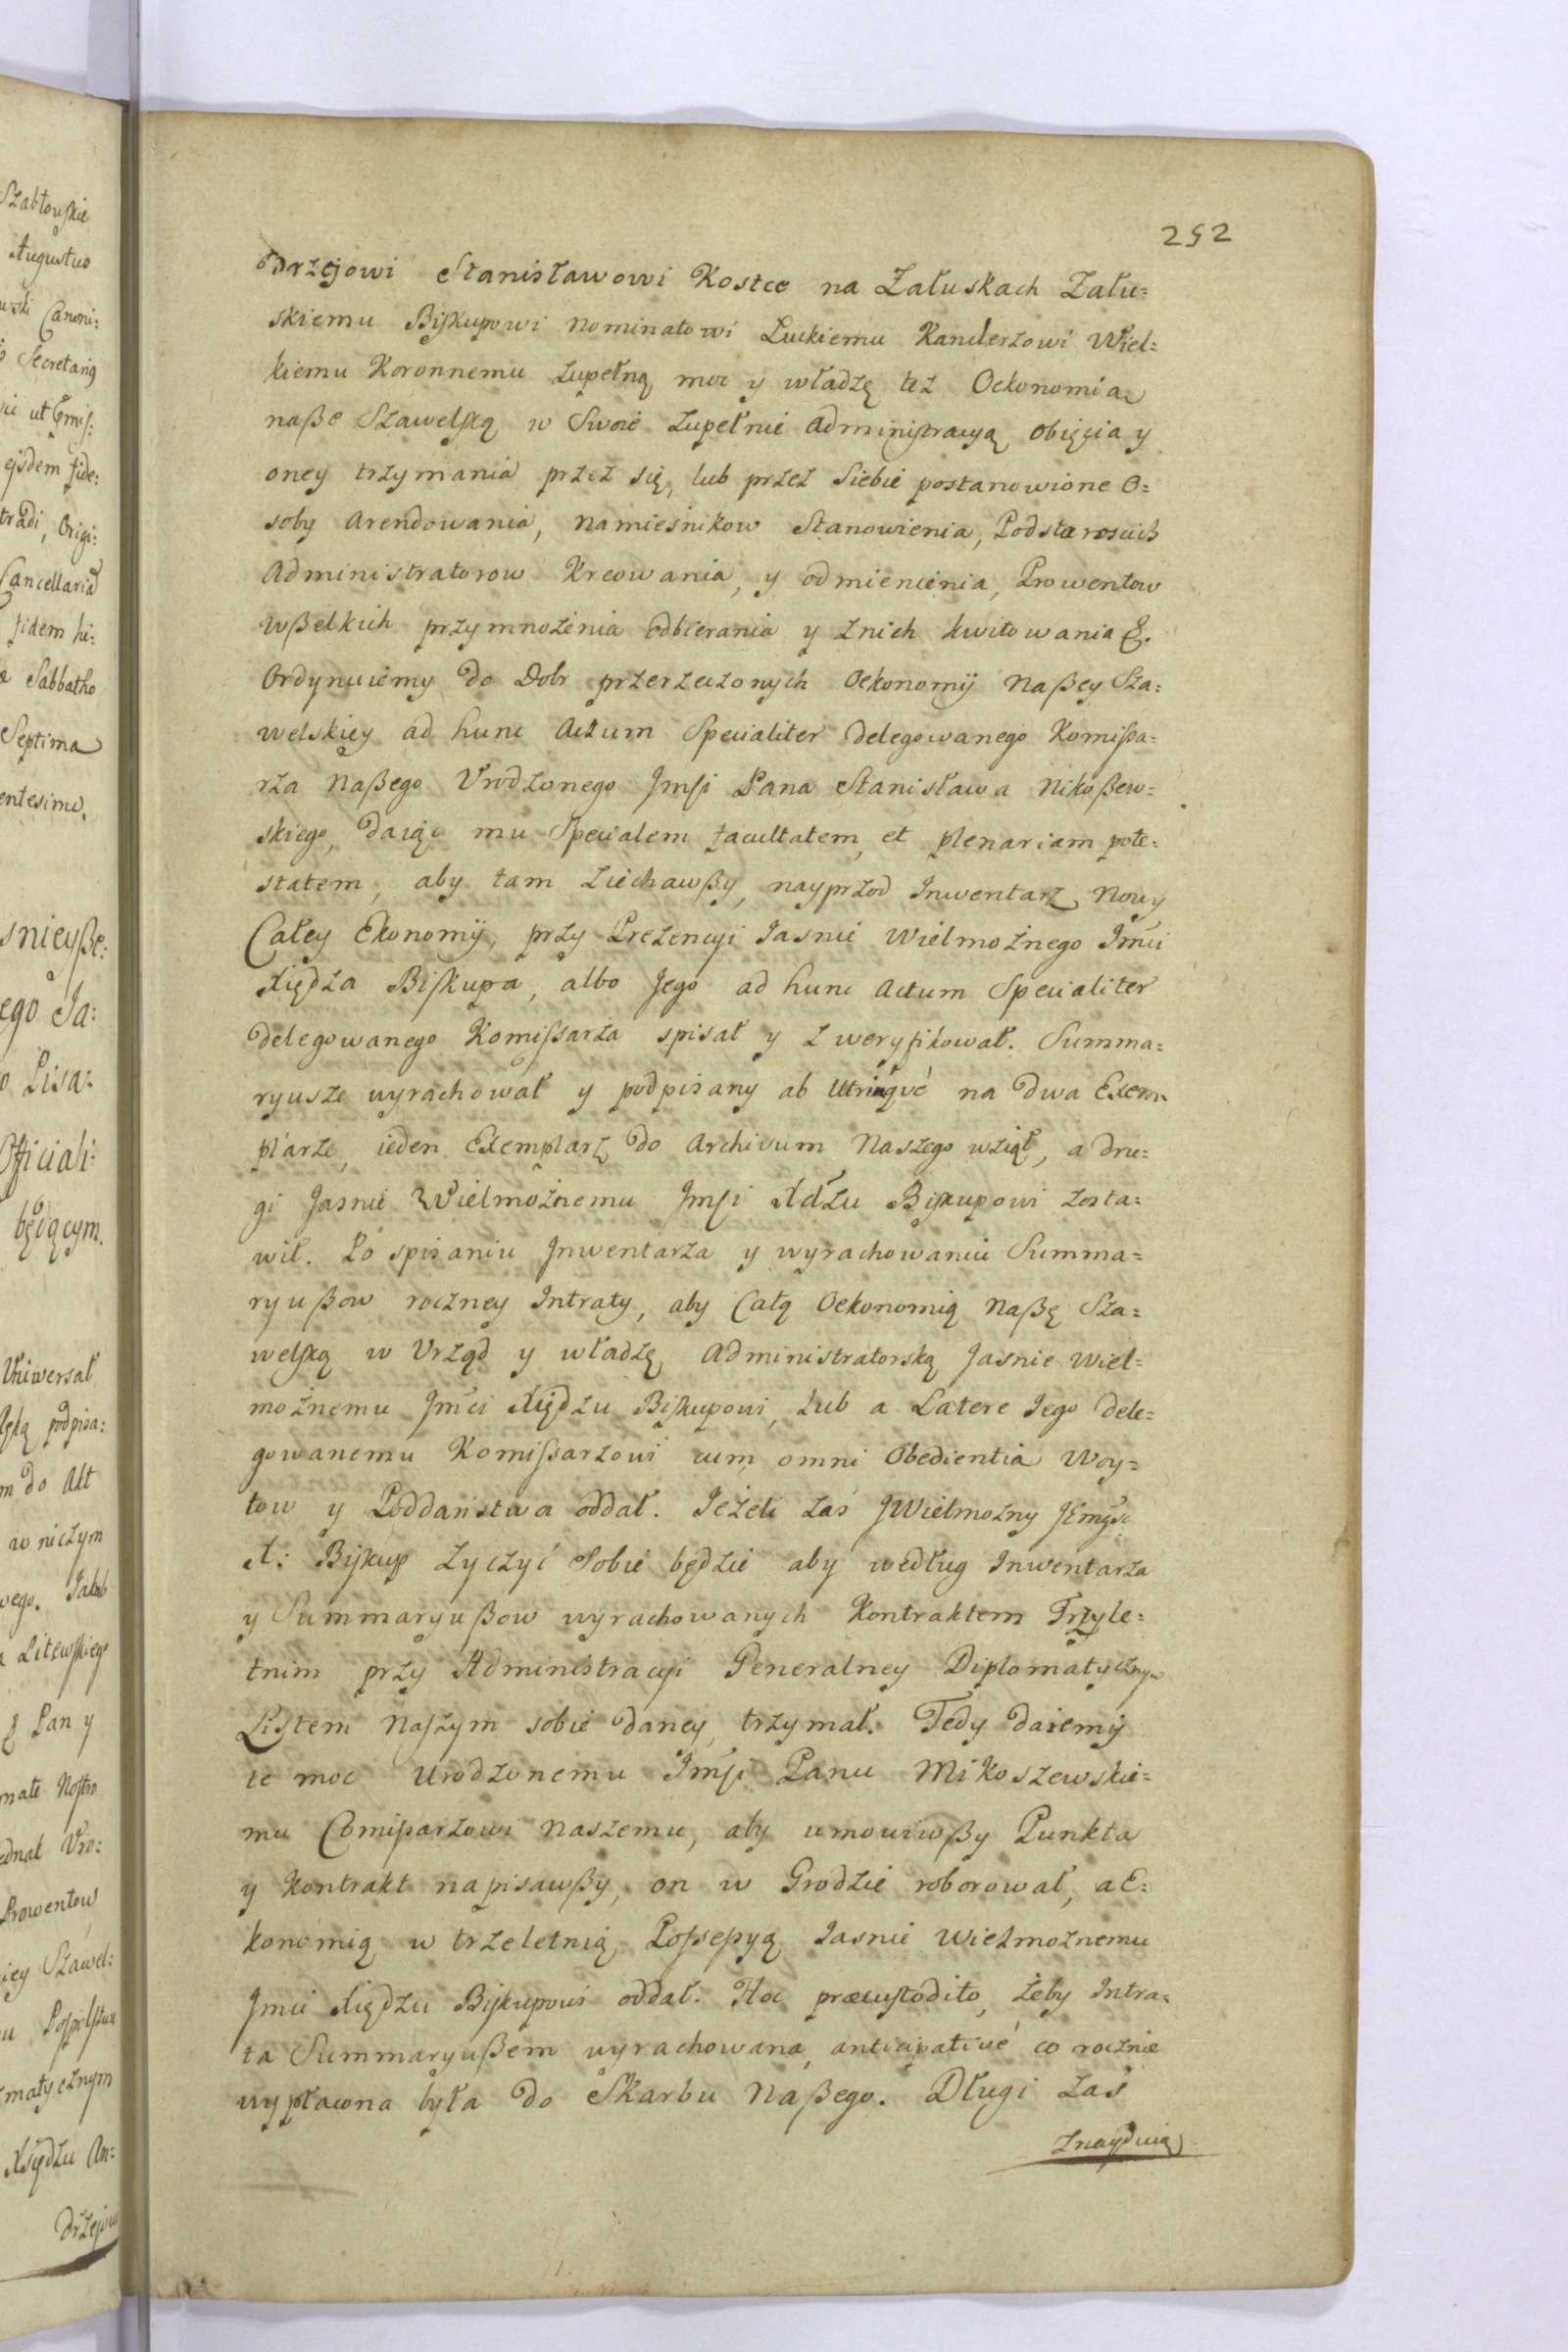 252
drzejowi Stanisławowi Kostce na Załuskach Zału=
skiemu Biskupowi nominatowi Łuckiemu Kanclerzowi Wiel=
kiemu Koronnemu zupełną moc y władzę też Oekonomią
naße Szawelską w Swoie zupełnie administracyą obięcia y
oney trzymania przez się, lub przez Siebie postanowione O=
soby arendowania, namiesnikow Stanowienia, Podstaroscich
Administratorow Kreowania, y odmienienia, Prowentow
wßelkich przymnożenia odbierania y znich kwitowania &.
Ordynuiemy do Dobr przerzeczonych Oekonomij naßey Sza=
welskiey ad hunc Actum Specialiter delegowanego Komißa=
rza naßego Urodzonego Jmsi Pana Stanisława Nikoßew=
skiego, daiąc mu Specialem facultatem et plenariam pote=
statem, aby tam ziechawßy, nayprzod Inwentarz nowy
Całey Ekonomij, przy Prezencyi Jasnie Wielmożnego Jmci
Xiędza Biskupa, albo Jego ad hunc Actum Specialiter
delegowanego Komissarza spisał y zweryfikował. Summa=
ryusze wyrachował y podpisany ab Utrinqve na dwa Exem
plarze, ieden Exemplarz do Archivum Naszego wziął, a dru=
gi Jasnie Wielmożnemu Jmsi Xdzu Biskupowi zosta=
wił. Po spisaniu Inwentarza y wyrachowaniu Summa=
ryußow roczney Intraty, aby Całą Oekonomią naßę Sza=
welską w Urząd y władzę Administratorską Jasnie Wiel=
możnemu Jmci Xiędzu Biskupowi, lub a Latere Jego dele=
gowanemu Komissarzowi cum omni Obedientia Woy=
tow y Poddaństwa oddał. Jeżeli zaś JWielmożny JEmść
X: Biskup życzyć Sobie będzie aby według Inwentarza
y Summaryußow wyrachowanych Kontraktem Trzyle=
tnim przy Administracyi Generalney Diplomatycznym
Listem Naszym sobie daney, trzymał. Tedy daiemy
te moc Urodzonemu Jmsi Panu Mikoszewskie=
mu Comißarzowi Naszemu, aby umowiwßy Punkta
y Kontrakt napisawßy, on w Grodzie roborował, a E=
konomią w trzeletnią Possessyą Jasnie Wielmożnemu
Jmci Xiędzu Biskupowi oddał. Hoc præcustodito, żeby Intra=
ta Summaryußem wyrachowana, anticipative co rocznie
wypłacona była do Skarbu Naßego. Długi zaś
znayduią